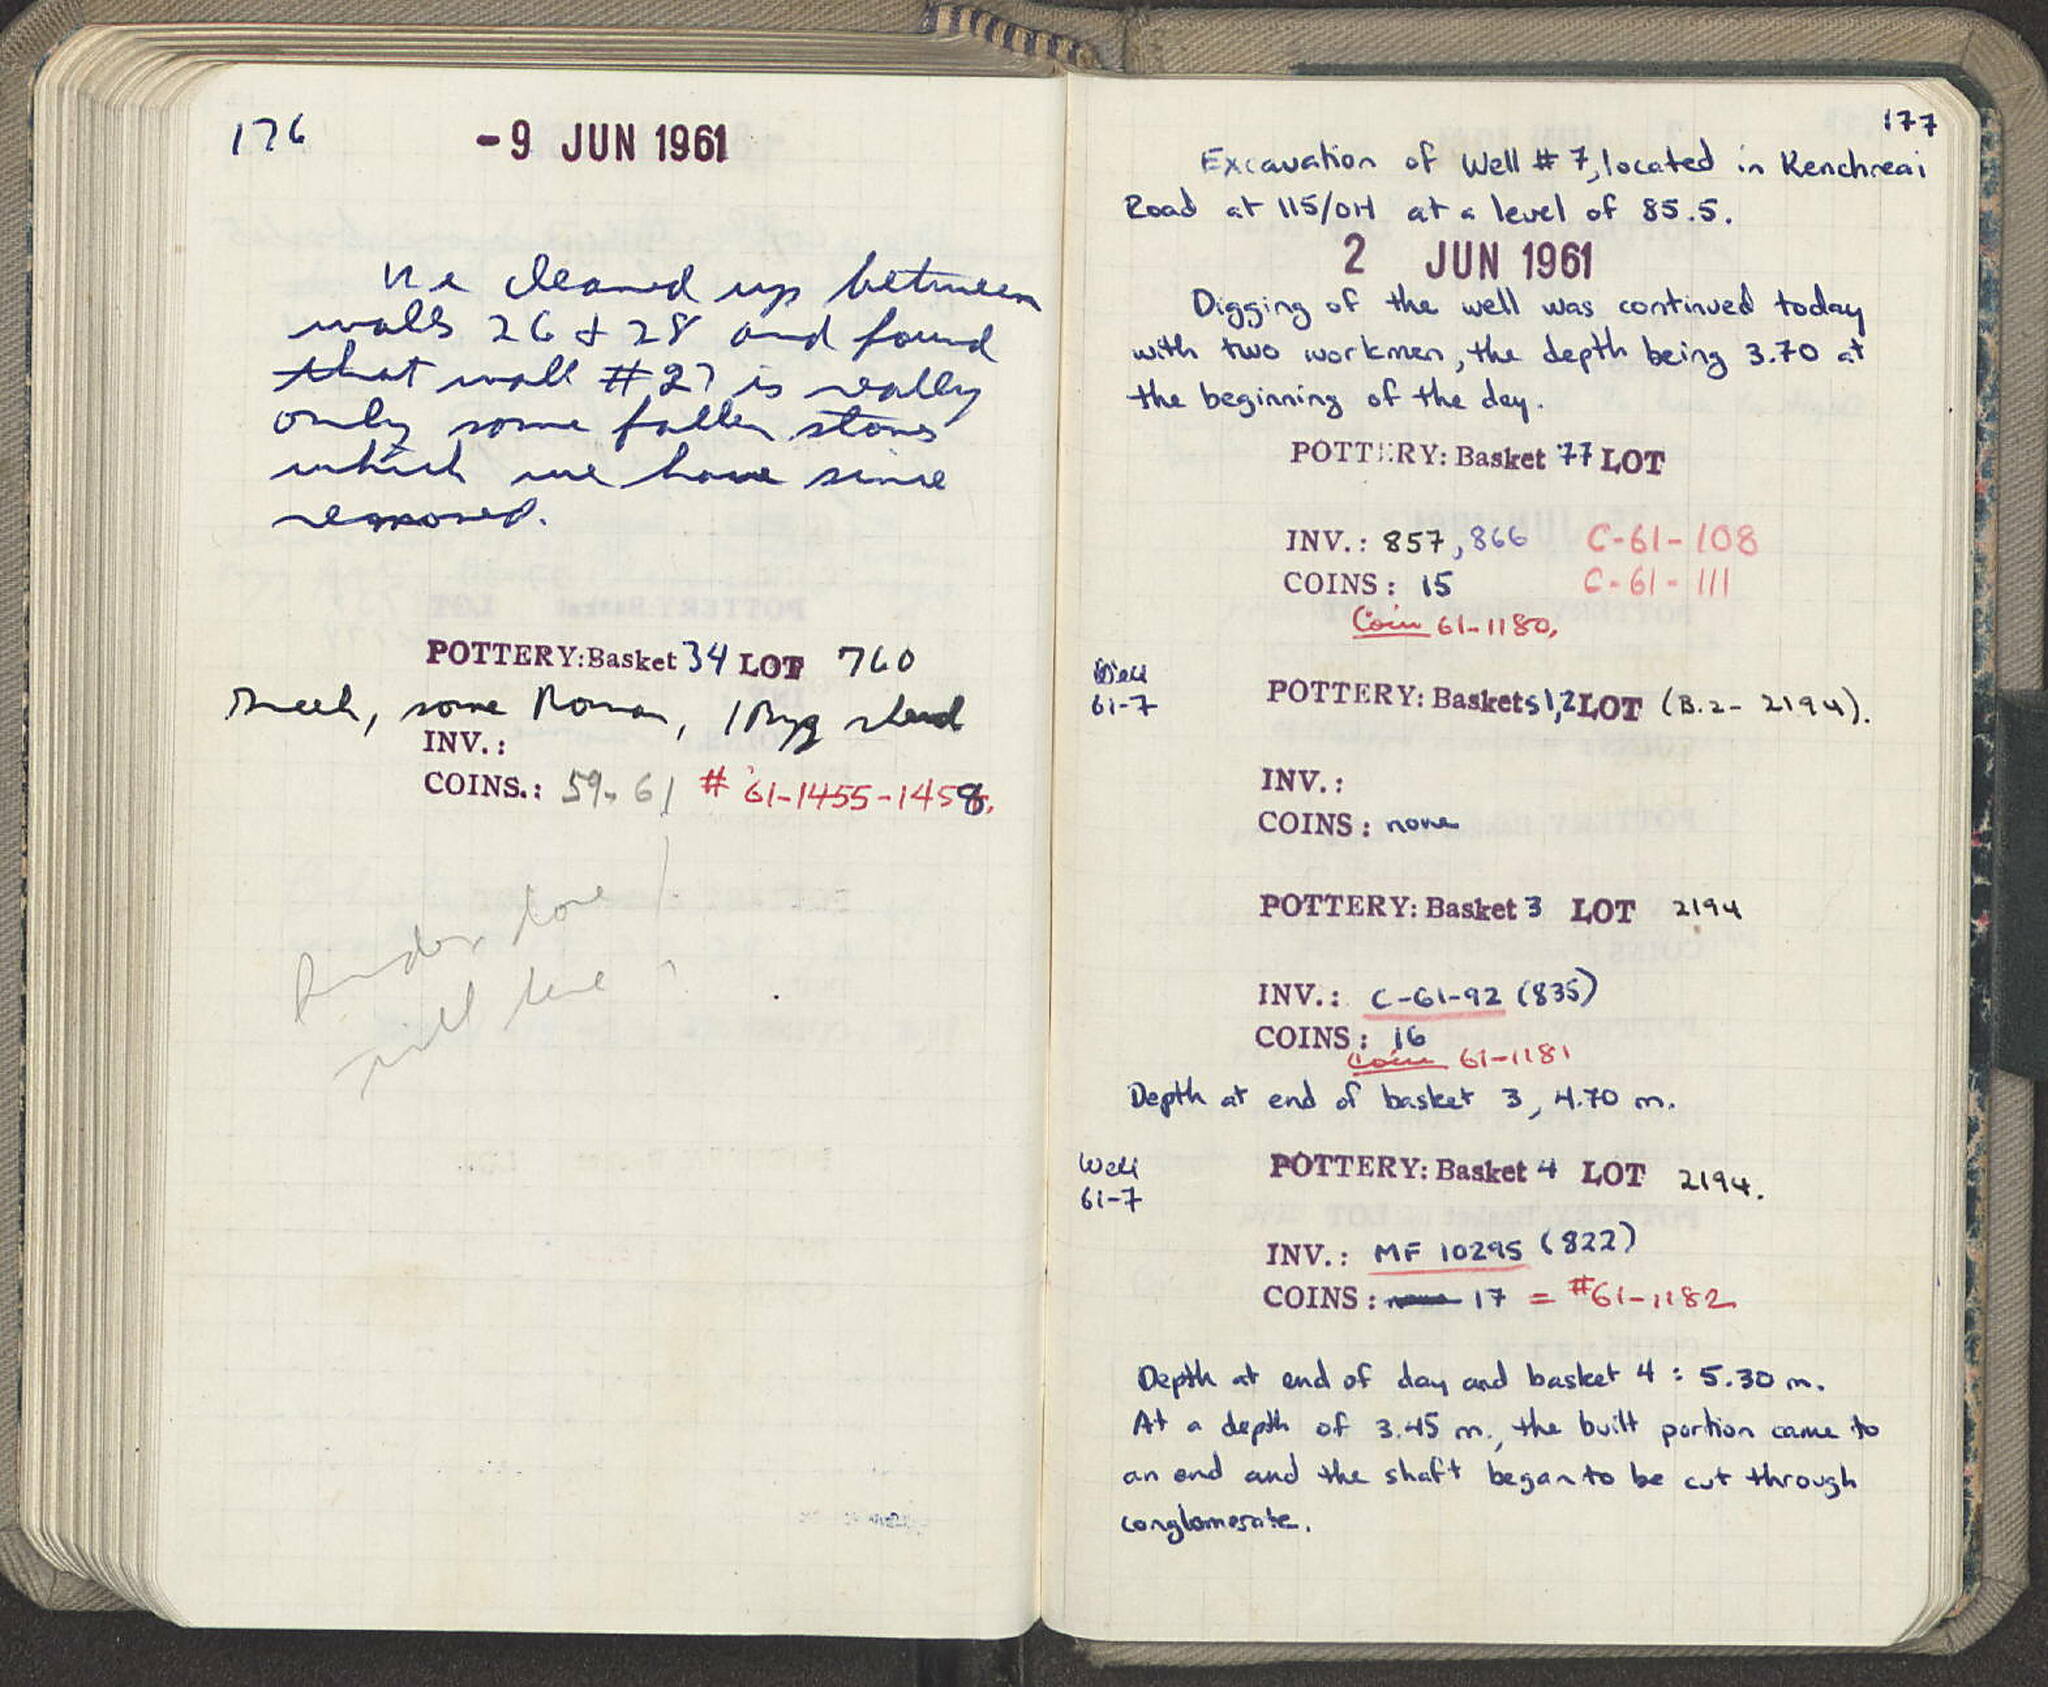 176
-9 JUN 1961
We cleaned up between
walls 26 & 28 and found
that wall #27 is really
only some fallen stones
which we have since
removed.
POTTERY: Basket 34 LOT 760
Greek, some Roman, 1 Byz sherd
INV.:
COINS.: 59-61 # 61-1455-1458.
177
Excavation of Well #7, located in Kenchreai
Road at 115/OH at a level of 85.5.
2 JUN 1961
Digging of the well was continued today
with two workmen, the depth being 3.70 at
the beginning of the day.
POTTERY: Basket 77 LOT
INV.: 857, 866 C-61-108
COINS: 15 C-61-111
Coin 61-1180.
Well
61-7
POTTERY: Baskets 1,2 LOT (B.2- 2194).
INV.:
COINS: none
POTTERY: Basket 3 LOT 2194
INV.: C-61-92 (835)
COINS: 16
Coin 61-1181
Depth at end of basket 3, 4.70 m.
Well
61-7
POTTERY: Basket 4 LOT 2194.
INV.: MF 10295 (822)
COINS: none 17 = #61-1182
Depth at end of day and basket 4 : 5.30 m.
At a depth of 3.45 m., the built portion came to
an end and the shaft began to be cut through
conglomerate.